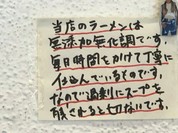 当店のラーメンは
無添加無化調です。
毎日時間をかけて丁寧に
仕込んでいるものです。
なので過剰にスープを
残されると切ないです。